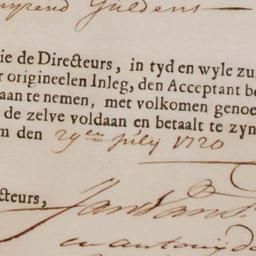 Guldens
ie de Directeurs, in tyd en wyle zu
r origineelen Inleg, den Acceptant be
aan te nemen, met volkomen genoe
de zelve voldaan en betaalt te zyn
m den 29en july 1720
cteurs,